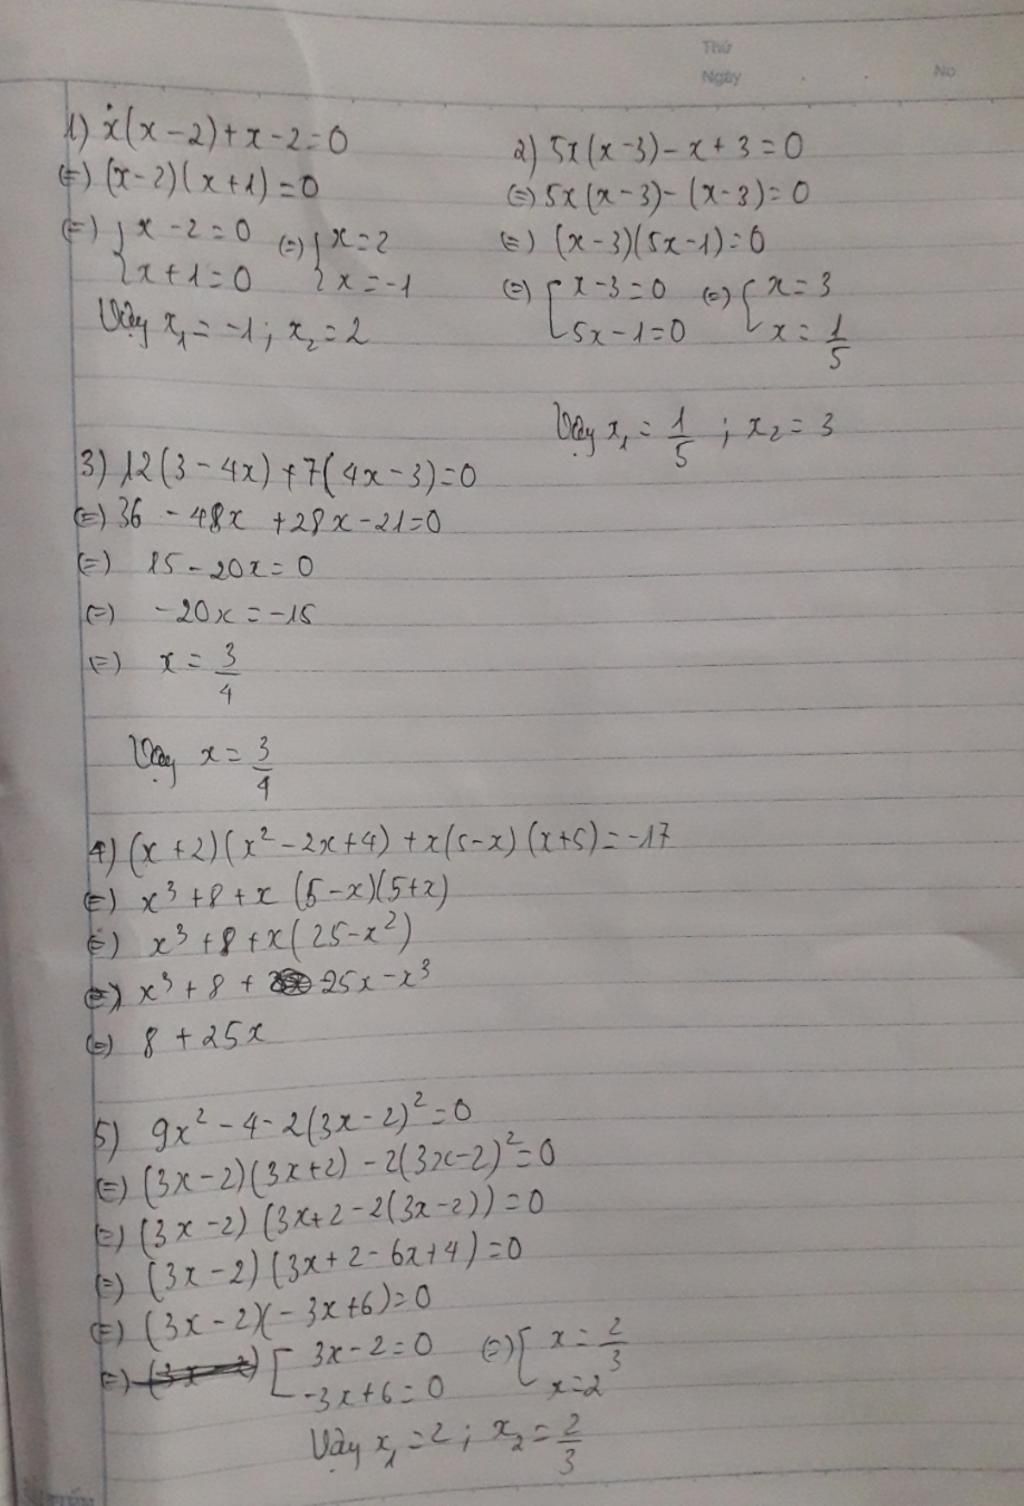 Thứ
Ngày
No
1) x(x-2)+x-2=0
(=) (x-2)(x+1)=0
(=) { x-2=0 (=) { x=2
x+1=0 x=-1
Vậy x₁=-1; x₂=2
2) 5x(x-3)-x+3=0
(=) 5x(x-3)-(x-3)=0
(=) (x-3)(5x-1)=0
(=) [ x-3=0 (=) [ x=3
5x-1=0 x=1/5
Vậy x₁=1/5 ; x₂=3
3) 12(3-4x)+7(4x-3)=0
(=) 36-48x+28x-21=0
(=) 15-20x=0
(=) -20x=-15
(=) x=3/4
Vậy x=3/4
4) (x+2)(x²-2x+4)+x(5-x)(x+5)=-17
(=) x³+8+x(5-x)(5+x)
(=) x³+8+x(25-x²)
(=) x³+8+25x-x³
(=) 8+25x
5) 9x²-4-2(3x-2)²=0
(=) (3x-2)(3x+2)-2(3x-2)²=0
(=) (3x-2)(3x+2-2(3x-2))=0
(=) (3x-2)(3x+2-6x+4)=0
(=) (3x-2)(-3x+6)=0
(=) [ 3x-2=0 (=) [ x=2/3
-3x+6=0 x=2
Vậy x₁=2; x₂=2/3